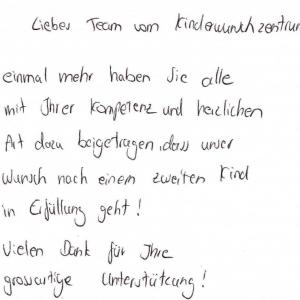 Liebes Team vom Kinderwunschzentrum
einmal mehr haben Sie alle
mit Ihrer Kompetenz und herzlichen
Art dazu beigetragen, dass unser
Wunsch nach einem zweiten Kind
in Erfüllung geht!
Vielen Dank für Ihre
grossartige Unterstützung!